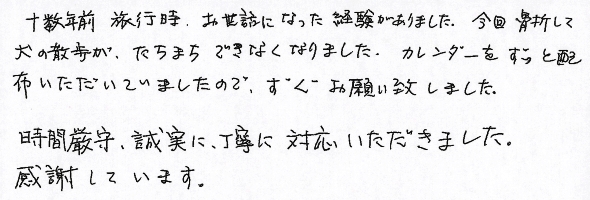 十数年前 旅行時、お世話になった経験がありました。今回骨折して
犬の散歩が、たちまちできなくなりました。カレンダーをずっと配
布いただいていましたので、すぐお願い致しました。
時間厳守、誠実に、丁寧に対応いただきました。
感謝しています。